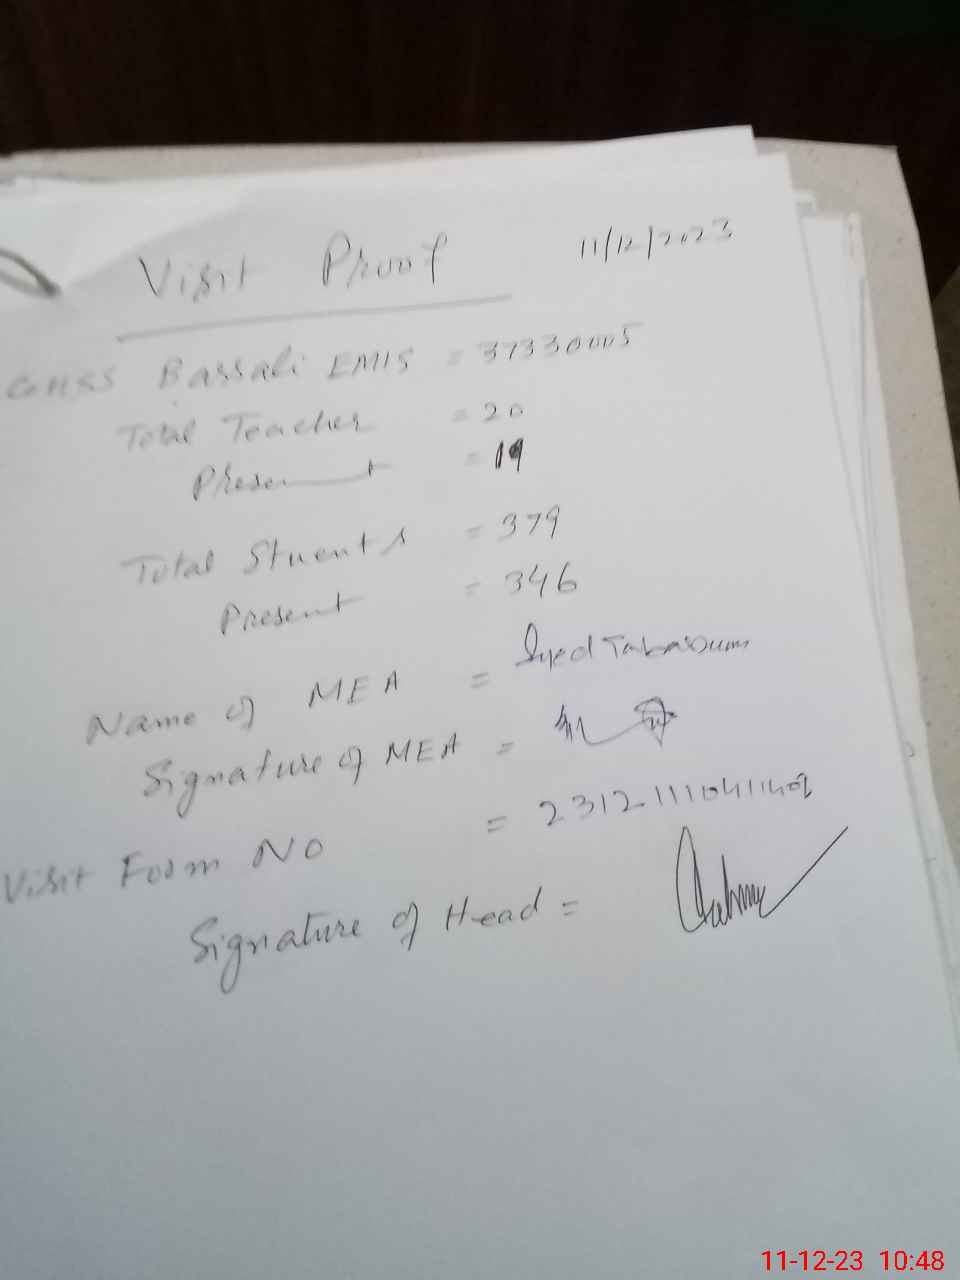 Visit Proof 11/12/2023
GHSS Bassali EMIS = 37330005
Total Teacher = 20
Present = 19
Total Stuents = 379
Present = 346
Name of MEA = Syed Tabasum
Signature of MEA =
Visit Form No =
Signature of Head =
11-12-23 10:48